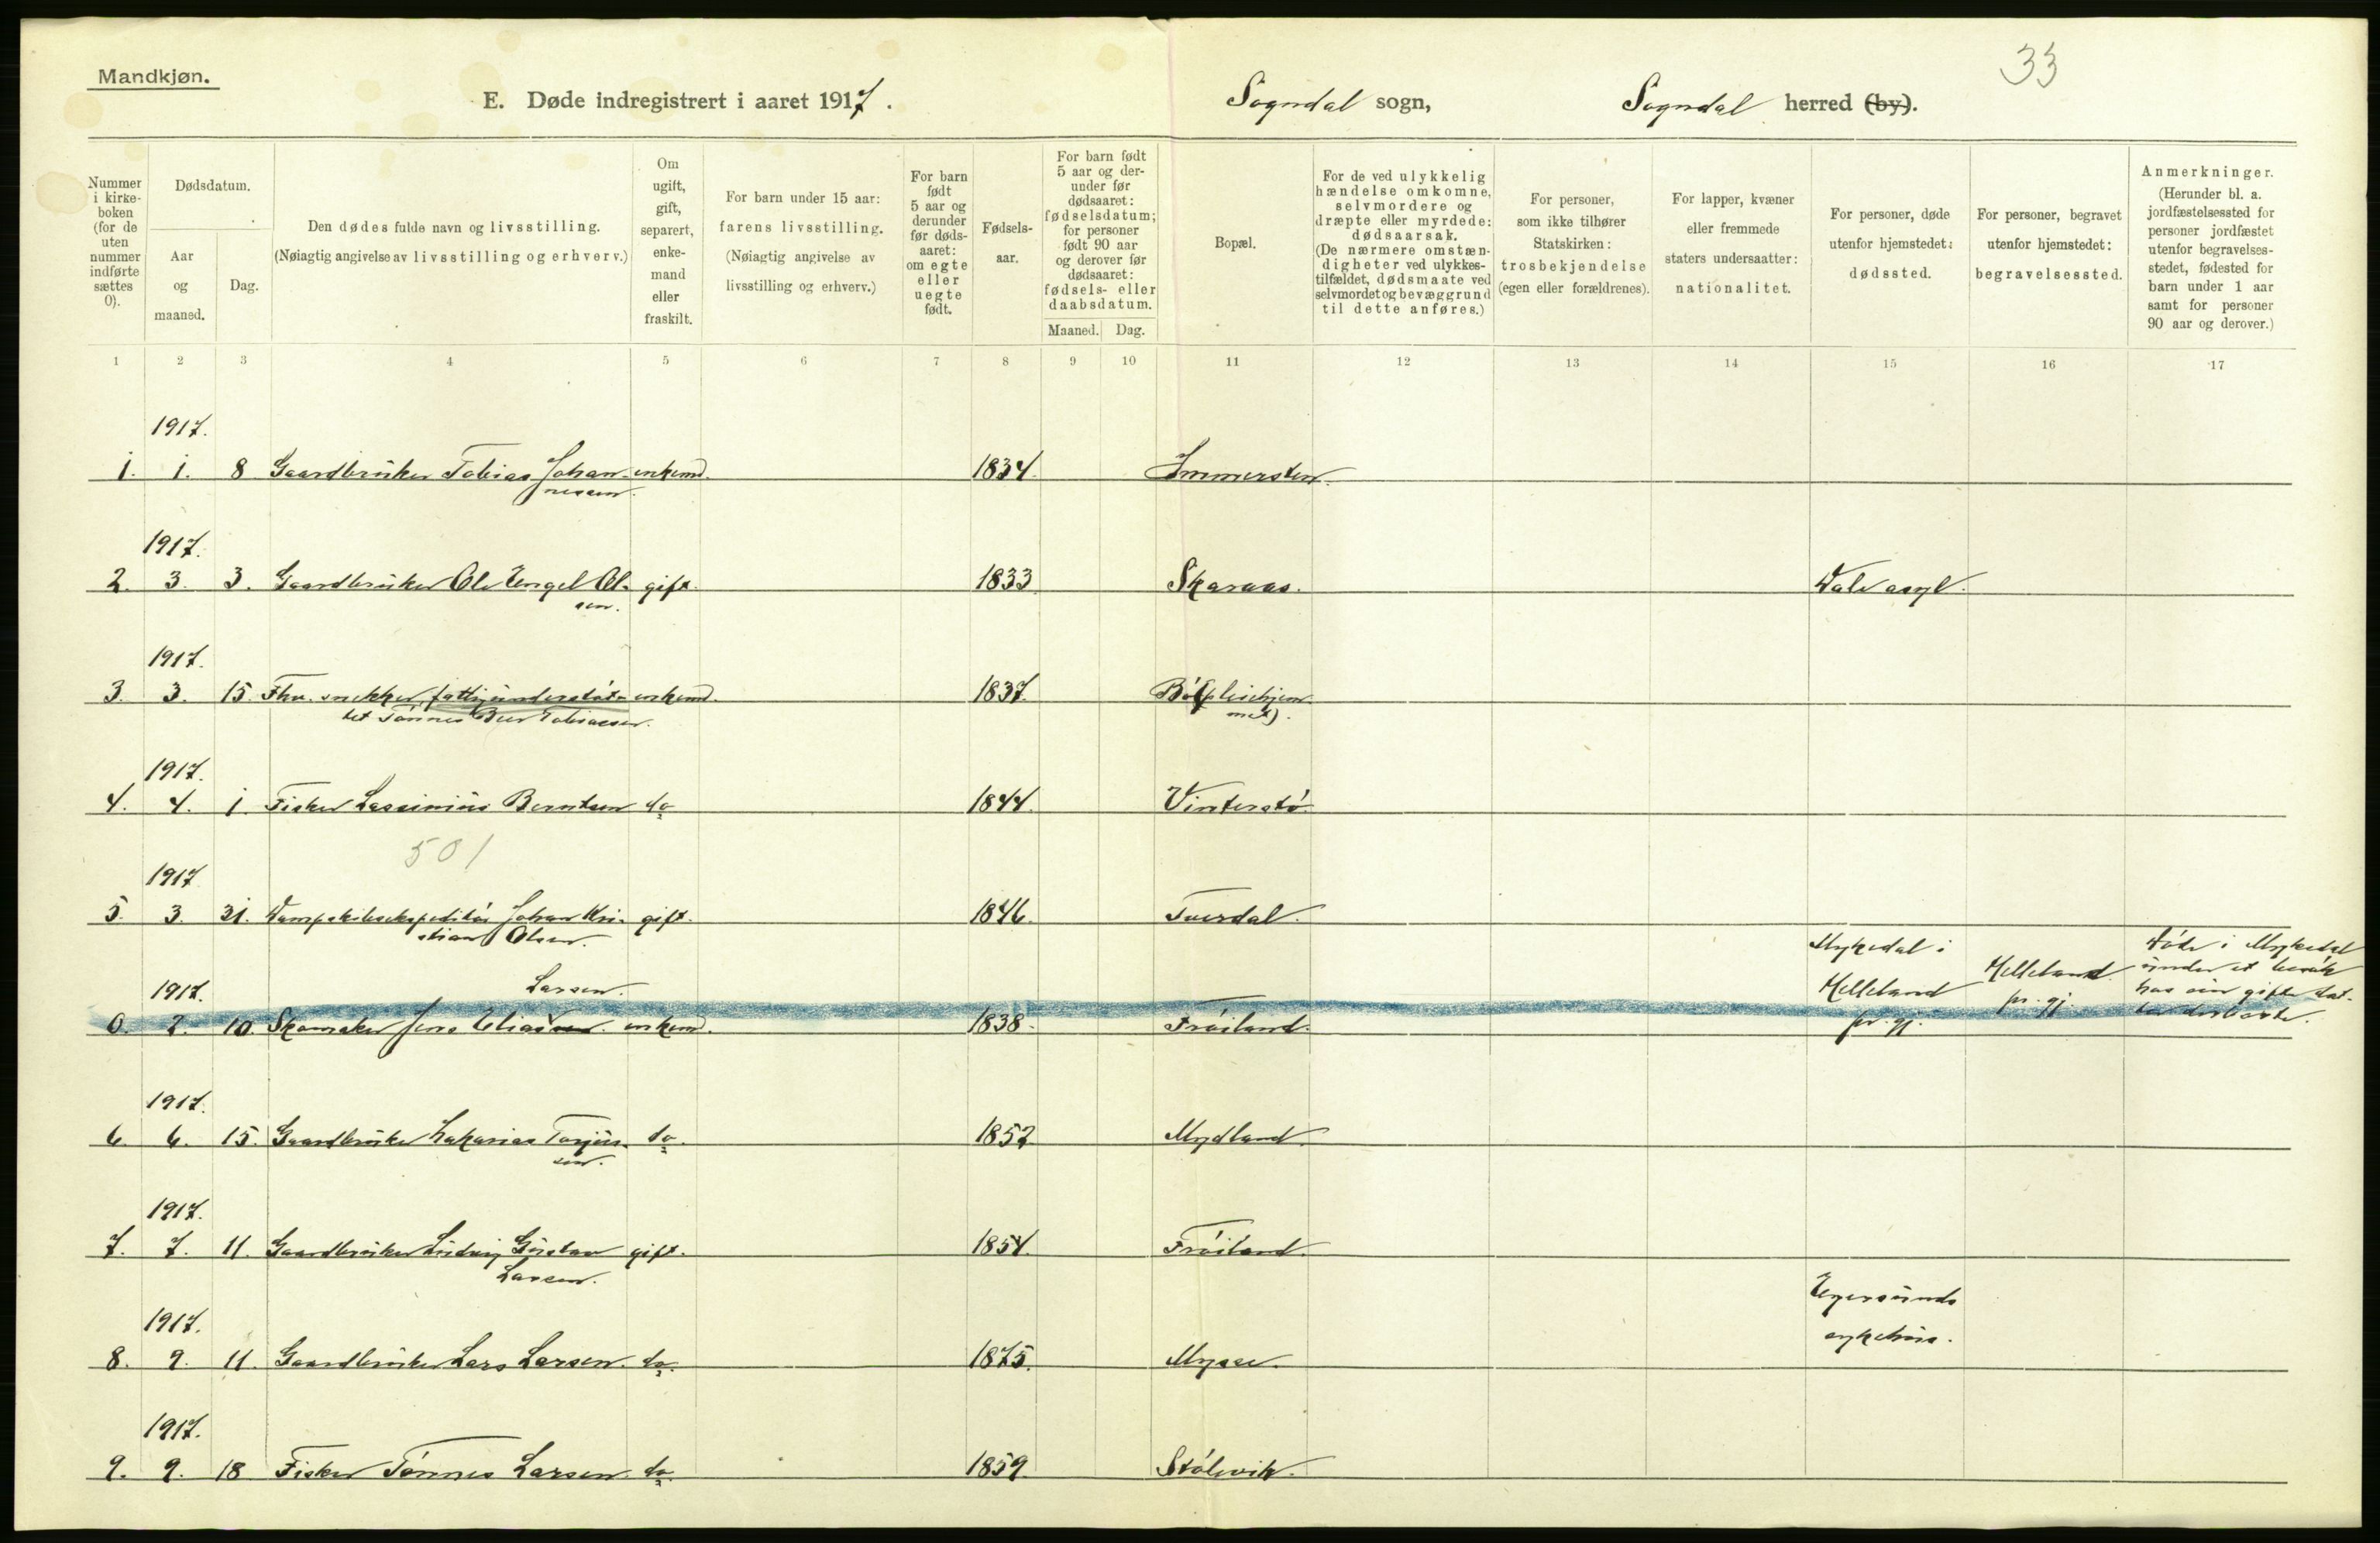 33
Mandkjøn.
E. Døde indregistrert i aaret 1917.
Sogndal sogn,
Sogndal herred (by).
Nummer i kirke-boken (for de uten nummer indførte sættes 0).
Dødsdatum.
Aar og maaned.
Dag.
Den dødes fulde navn og livsstilling.
(Nøiagtig angivelse av livsstilling og erhverv.)
Om ugift, gift, separert, enke-mand eller fraskilt.
For barn under 15 aar:
farens livsstilling.
(Nøiagtig angivelse av livsstilling og erhverv.)
For barn født 5 aar og derunder før døds-aaret: om egte eller uegte født.
Fødsels-aar.
For barn født 5 aar og der-under før dødsaaret: fødselsdatum; for personer født 90 aar og derover før dødsaaret: fødsels- eller daabsdatum.
Maaned. Dag.
Bopæl.
For de ved ulykkelig hændelse omkomne, selvmordere og dræpte eller myrdede: dødsaarsak.
(De nærmere omstæn-digheter ved ulykkes-tilfældet, dødsmaate ved selvmordet og bevæggrund til dette anføres.)
For personer, som ikke tilhører Statskirken: trosbekjendelse (egen eller forældrenes).
For lapper, kvæner eller fremmede staters undersaatter: nationalitet.
For personer, døde utenfor hjemstedet: dødssted.
For personer, begravet utenfor hjemstedet: begravelsessted.
Anmerkninger.
(Herunder bl. a. jordfæstelsessted for personer jordfæstet utenfor begravelses-stedet, fødested for barn under 1 aar samt for personer 90 aar og derover.)
1 2 3 4 5 6 7 8 9 10 11 12 13 14 15 16 17
1917.
1. 1. 8 Gaardbruker Tobias Johan- enkemd. 1834. Immersten.
nesen.
1917.
2. 3. 3. Gaardbruker Ole Engel Ol- gift. 1833 Skaraas. Dale asyl.
sen.
1917.
3. 3. 15. Fhv. snekker, fattigunderstøt- enkemd. 1837. Bø (pleiehjem-
tet Tønnes Beer Tobiassen. met).
1917.
4. 4. 1. Fisker Berntsen do 1844. Vinterstø
501
1917
5. 3. 31. Dampskibsekspeditør Johan Kri- gift. 1846. Tverdal.
stian Olsen.
Mykedal i Helleland pr. gj.
Helleland pr. gj.
Døde i Mykedal under et besøk hos sin gifte dat-
Larsen.
1917.
0. 2. 10. Skomaker Jens Elias enkemd. 1838. Frøiland.
1917.
6. 6. 15. Gaardbruker Zakarias Torjus- do. 1852 Mydland.
sen.
1917.
7. 7. 11. Gaardbruker Ludvig Gustav gift. 1854. Frøiland.
Larsen.
Egersunds sykehus.
1917.
8. 9. 11. Gaardbruker Lars Larsen. do. 1875. Mysse.
1917.
9. 9. 18 Fisker Tønnes Larsen. do. 1859. Stølsvik.